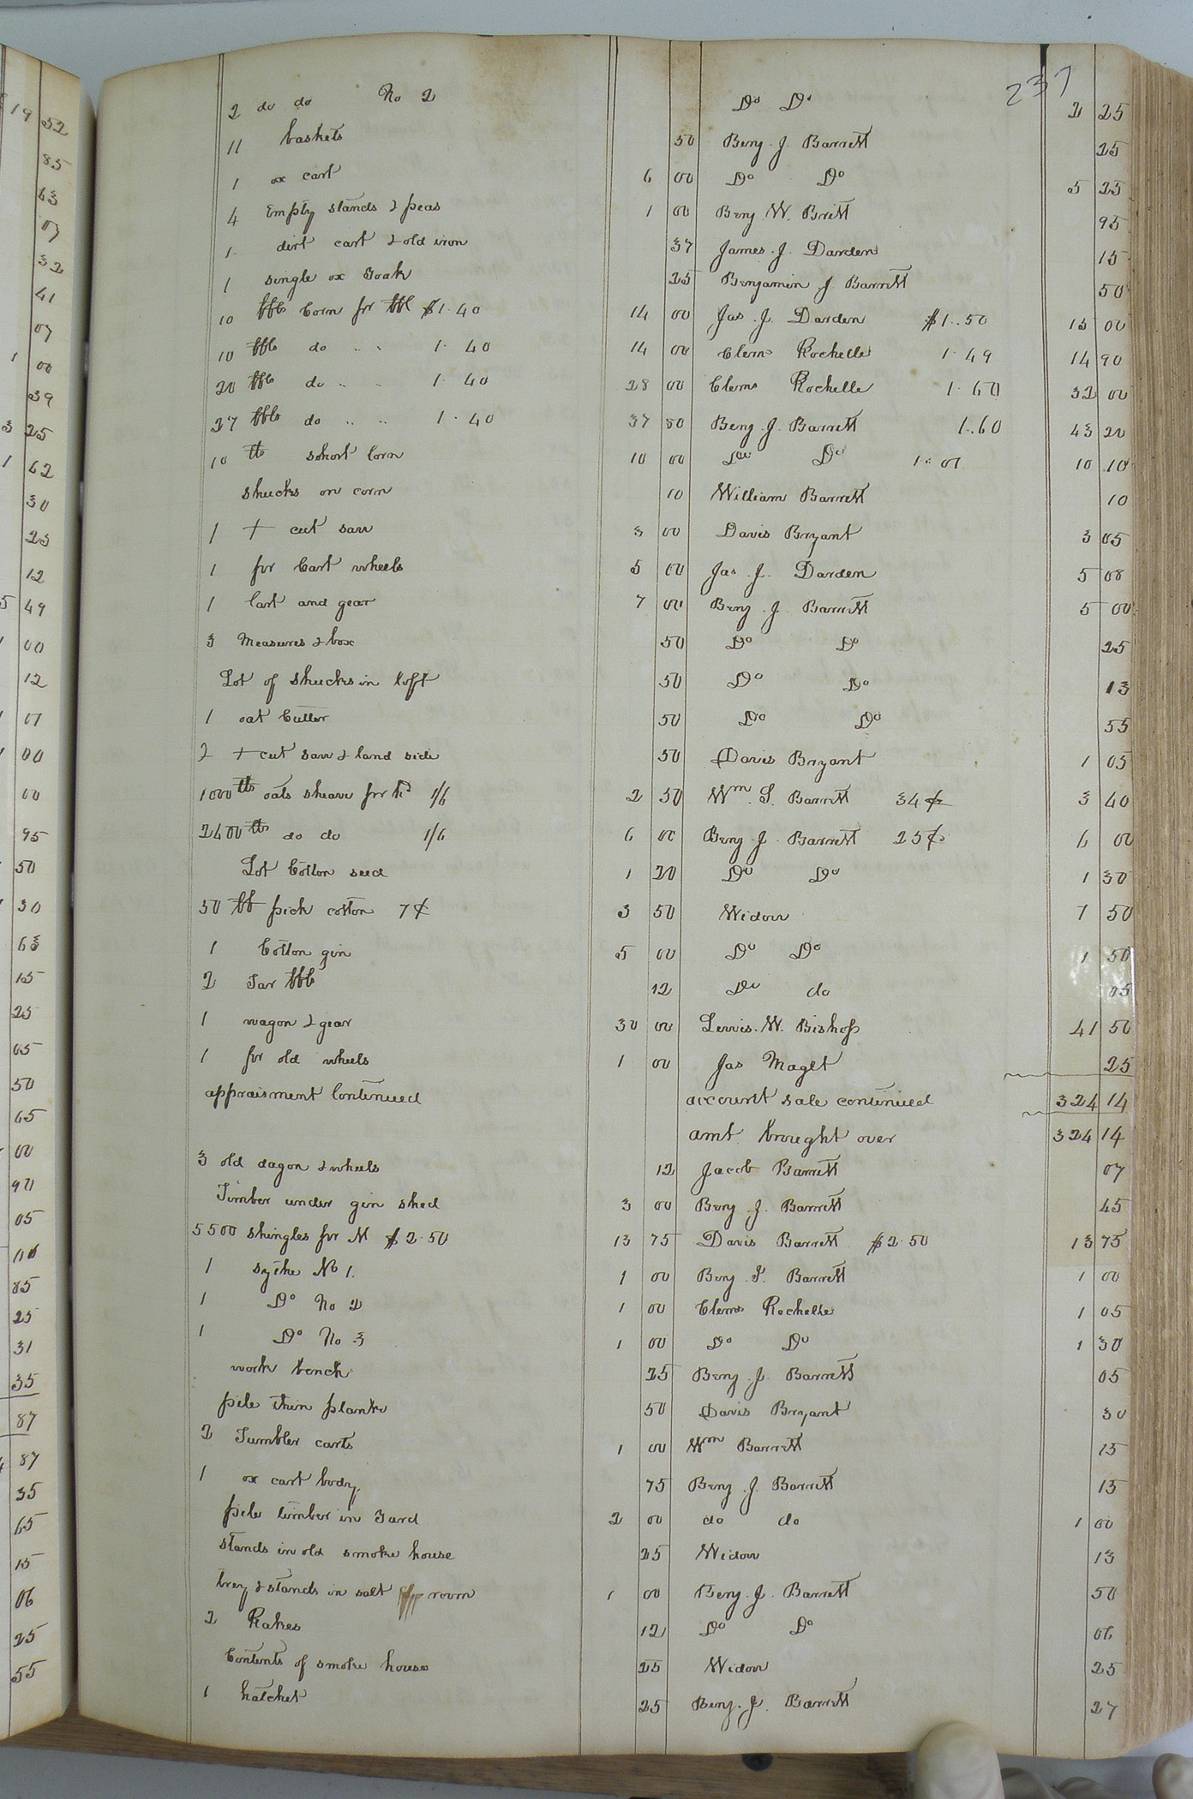 237
2 do do No 2 Do Do 2 25
11 baskets 50 Benj. J. Barrett 25
1 ox cart 6 00 Do Do 5 25
4 Empty stands & peas 1 00 Benj W. Britt 95
1 dirt cart & old iron 37 James. J. Darden 15
1 single ox 25 Benjamin J Barrett 50
10 bbls Corn pr bbl $1.40 14 00 Jas. J. Darden $1..50 15 00
10 bbls do " " 1.40 14 00 Clems Rochelle 1.49 14 90
20 bbls do " " 1.40 28 00 Clems Rochelle 1.60 32 00
27 bbls do " " 1.40 37 80 Benj. J. Barrett 1.60 43 20
10 short Corn 10 00 Do Do 1.01 10 10
shucks on corn 10 William Barrett 10
1 + cut saw 3 00 Davis Bryant 3 05
1 pr Cart wheels 5 00 Jas. J. Darden 5 08
1 Cart and gear 7 00 Benj. J. Barrett 5 00
3 Measures & box 50 Do Do 25
Lot of shucks in loft 50 Do Do 13
1 oat Cutter 50 Do Do 55
2 + cut saw & land side 50 Davis Bryant 1 05
1000 lbs oats sheave pr hd 1/6 2 50 Wm. S. Barrett 34 ¢ 3 40
2400 lbs do do 1/6 6 00 Benj. J. Barrett 25¢ 6 00
Lot Cotton seed 1 20 Do Do 1 30
50 lb pick cotton 7¢ 3 50 Widow 7 50
1 Cotton gin 5 00 Do Do 1 50
2 Tar bbls 12 Do do 05
1 wagon & gear 30 00 Lewis. W. Bishop 41 50
1 pr old wheels 1 00 Jas Maget 25
appraisment Continued account sale continued 324 14
amt brought over 324 14
3 old dagon & wheels 12 Jacob Barrett 07
Timber under gin shed 3 00 Benj. J. Barrett 45
5500 shingles pr M $2.50 13 75 Davis Barrett $2.50 13 75
1 sythe No 1. 1 00 Benj. J. Barrett 1 00
1 Do No 2 1 00 Clems Rochelle 1 05
1 Do No 3 1 00 Do Do 1 30
work bench 25 Benj. J. Barrett 05
pile thin planks 50 Davis Bryant 30
2 Tumbler carts 1 00 Wm Barrett 15
1 ox cart body. 75 Benj. J. Barrett 15
pile timber in Yard 2 00 do do 1 00
stands in old smoke house 25 Widow 13
& stands in salt room 1 00 Benj. J. Barrett 50
2 Rakes 12 Do Do 06
Contents of smoke house 25 Widow 25
1 hatchet 25 Benj. J. Barrett 27